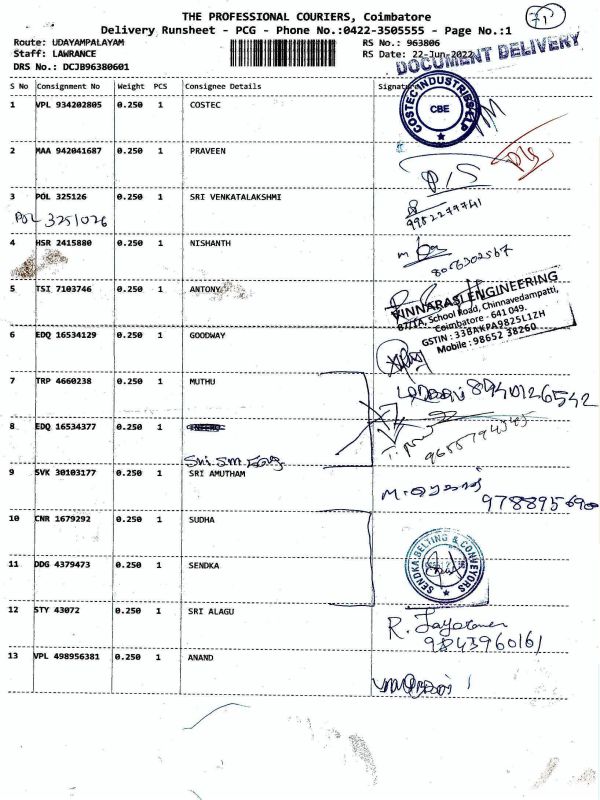 THE PROFESSIONAL COURIERS, Coimbatore
Delivery Runsheet - PCG - Phone No.:0422-3505555 - Page No.:1
Route: UDAYAMPALAYAM
RS No.: 963806
Staff: LAWRANCE
RS Date: 22-Jun-2022
DRS No.: DCJB96380601
DOCUMENT DELIVERY
S No Consignment No Weight PCS Consignee Details Signature
1 VPL 934202805 0.250 1 COSTEC
COSTEC INDUSTRIES LLP
CBE
2 MAA 942041687 0.250 1 PRAVEEN
P/S
3 POL 325126 0.250 1 SRI VENKATALAKSHMI
POL 3251026
4 HSR 2415880 0.250 1 NISHANTH
8056202567
5 TSI 7103746 0.250 1 ANTONY
VINNARASI ENGINEERING
87/1A, School Road, Chinnavedampatti,
Coimbatore - 641 049.
GSTIN : 33BAKPA9825L1ZH
Mobile : 98652 38260
6 EDQ 16534129 0.250 1 GOODWAY
7 TRP 4660238 0.250 1 MUTHU
8 EDQ 16534377 0.250 1
Sri. Sm.
9 SVK 30103177 0.250 1 SRI AMUTHAM
10 CNR 1679292 0.250 1 SUDHA
11 DDG 4379473 0.250 1 SENDKA
SENDKA BELTING & CONVEYORS
12 STY 43072 0.250 1 SRI ALAGU
R. Jayaraman
9843960161
13 VPL 498956381 0.250 1 ANAND